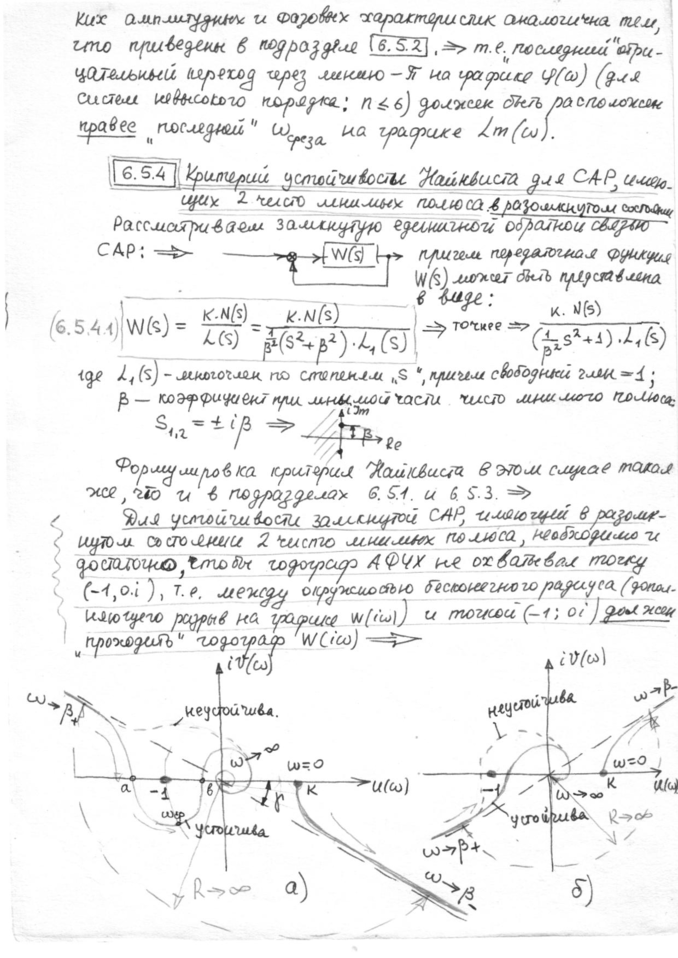 ких амплитудных и фазовых характеристик аналогична тем,
что приведены в подразделе 6.5.2. ⇒ т.е. „последний" отри-
цательный переход через линию -π на графике φ(ω) (для
систем невысокого порядка: n ≤ 6) должен быть расположен
правее „последней" ωсреза на графике Lm(ω).
6.5.4 Критерий устойчивости Найквиста для САР, имею-
щих 2 чисто мнимых полюса в разомкнутом состоянии
Рассматриваем замкнутую единичной обратной связью
САР: ⇒ W(s) причем передаточная функция
W(s) может быть представлена
в виде:
(6.5.4.1) W(s) = K·N(s)/L(s) = K·N(s)/(1/β²(s²+β²)·L₁(s)) ⇒ точнее ⇒ K·N(s)/((1/β² s²+1)·L₁(s))
где L₁(s) – многочлен по степеням „s", причем свободный член = 1;
β – коэффициент при мнимой части чисто мнимого полюса:
S₁,₂ = ± iβ ⇒ iJm β Re
Формулировка критерия Найквиста в этом случае такая
же, что и в подразделах 6.5.1. и 6.5.3. ⇒
Для устойчивости замкнутой САР, имеющей в разомк-
нутом состоянии 2 чисто мнимых полюса, необходимо и
достаточно, чтобы годограф АФЧХ не охватывал точку
(-1, 0.i), т.е. между окружностью бесконечного радиуса (допол-
няющего разрыв на графике W(iω)) и точкой (-1; 0i) должен
„проходить" годограф W(iω) ⇒
iV(ω)
ω→β+
неустойчива.
ω→∞
ω=0
a
-1
в
γ
K
U(ω)
ωср
устойчива
R→∞
а)
ω→β-
iV(ω)
ω→β-
неустойчива
ω=0
-1
K
U(ω)
ω→∞
устойчива
R→∞
ω→β+
б)